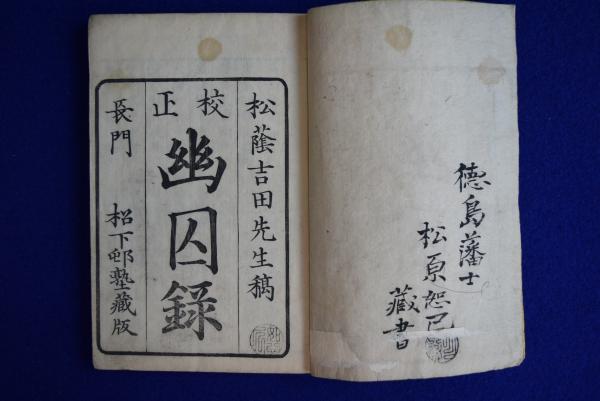 徳島藩士
松原恕己
藏書
松蔭吉田先生稿
校正
幽囚録
長門 松下邨塾藏版